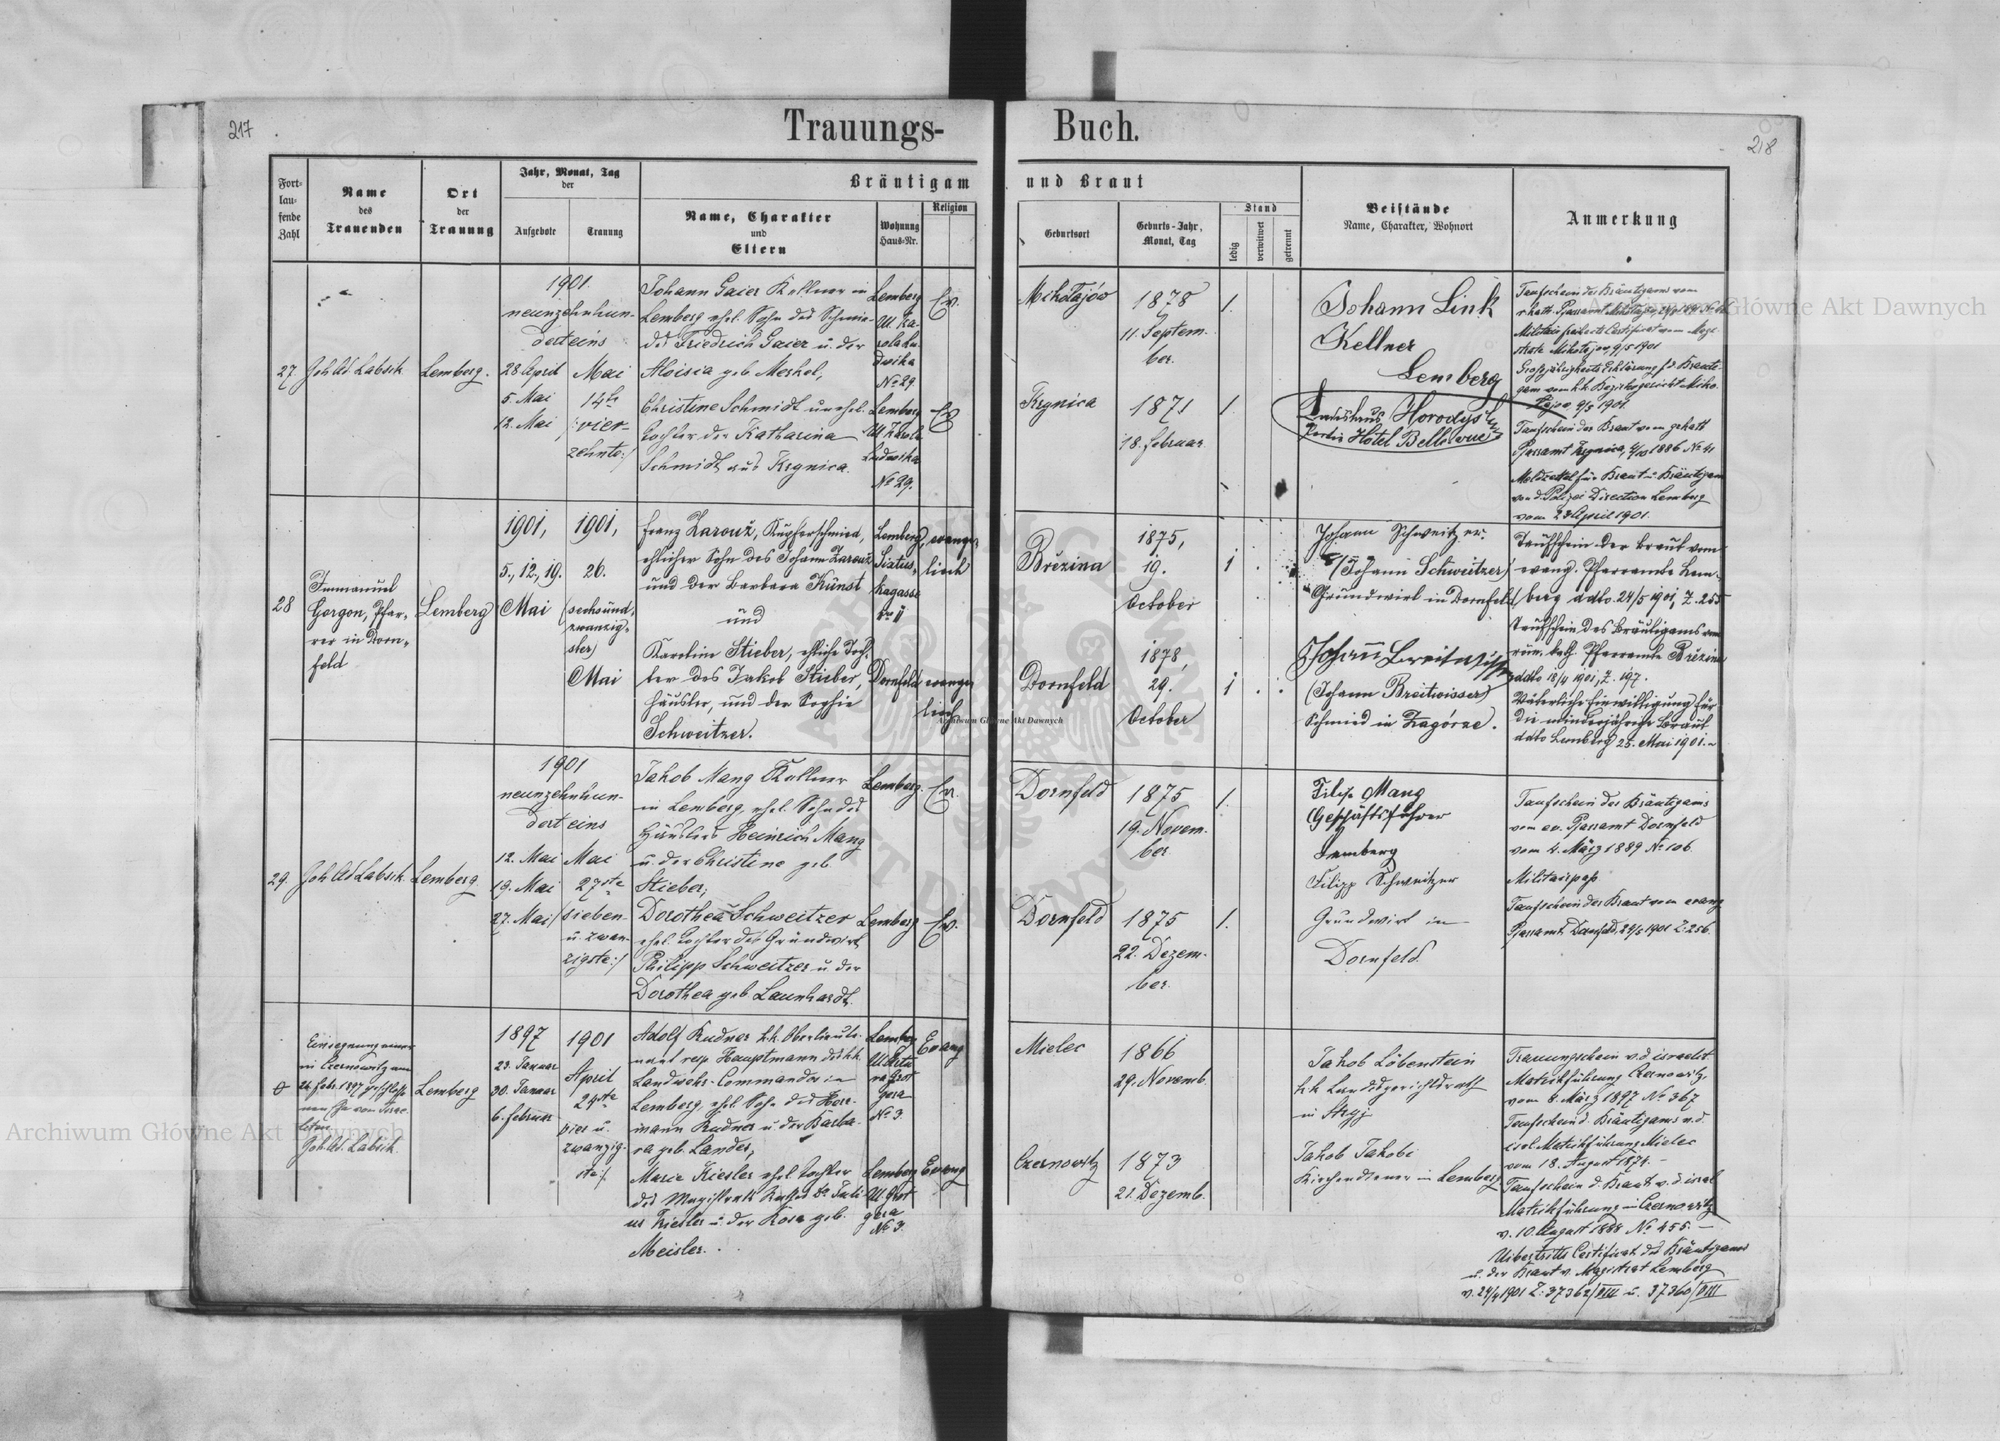 217
Trauungs-
Buch.
218
Fort-
lau-
fende
Zahl
Name
des
Trauenden
Ort
der
Trauung
Jahr, Monat, Tag
der
Aufgebote
Trauung
Bräutigam
und Braut
Name, Charakter
und
Eltern
Wohnung
Haus-Nr.
Religion
Geburtsort
Geburts-Jahr,
Monat, Tag
Stand
ledig
verwitwet
getrennt
Beistände
Name, Charakter, Wohnort
Anmerkung
27
Joh Ad Labsik
Lemberg.
1901.
neunzehnhun-
derteins
28 April
5. Mai
12. Mai
Mai
14te
/:vier-
zehnte:/
Johann Gaier Kellner in
Lemberg ehel. Sohn des Schmie-
des Friedrich Gaier u. der
Aloisia geb Merkel,
Christine Schmidt unehel.
Tochter der Katharina
Schmidt aus Krynica.
Lemberg
Ul. Ka-
rola Lu-
dwika
No 29
Lemberg
Ul. Karola
Ludwika
No 29.
Ev.
Ev
Mikołajów
1878
11. Septem-
ber.
1.
Krynica
1871
18. Februar
1.
Johann Link
Kellner
Lemberg
Horodyski
Portier Hôtel Bellevue
Taufschein des Bräutigams vom
Taufschein der Braut vom gr. kath
Pfarramt Krynica, 1886 No 41
Meldzettel für Braut u. Bräutigam
von d. Polizei Direction Lemberg
vom 23 April 1901.
28
Immanuel
Gorgon, Pfar-
rer in Dorn-
feld
Lemberg
1901,
5., 12., 19.
Mai
1901,
26.
(sechsund-
zwanzig-
ster)
Mai
Franz Zarouž, Kupferschmied,
ehelicher Sohn des Johann Zarouž
und der Barbara Künst
und
Karoline Stieber, eheliche Toch-
ter des Jakob Stieber,
Häusler, und der Sophie
Schweitzer.
Lemberg,
Sixtus-
kagasse
Dornfeld
evange-
lisch
evange-
lisch
Březina
1875,
19.
October
1
Dornfeld
1878,
29.
October
1
Johann Schweitzer.
(Johann Schweitzer)
Grundwirt in Dornfeld
Johann Breitwisser
(Johann Breitwisser)
Schmied in Zagórze.
Taufschein der Braut vom
evang. Pfarramte Lem-
berg ddto 24/5 1901, Z. 255
Taufschein des Bräutigams vom
röm. kath. Pfarramte Březina
ddto 18/4 1901, Z. 197.
Väterliche Einwilligung für
die minderjährige Braut
ddto Lemberg 25. Mai 1901.
29.
Joh Ad Labsik.
Lemberg.
1901
neunzehnhun-
dert eins
12. Mai
19. Mai
27. Mai
Mai
27ste
/sieben-
u. zwan-
zigste:/
Jakob Mang Kellner
in Lemberg, ehel. Sohn des
Häuslers Heinrich Mang
u. der Christine geb
Stieber;
Dorothea Schweitzer
ehel. Tochter des Grundwirt
Philipp Schweitzer u. der
Dorothea geb Launhardt.
Lemberg.
Lemberg
Ev.
Ev.
Dornfeld
1875
19. Novem-
ber
1.
Dornfeld
1875
22. Dezem-
ber.
1.
Filip Mang
Geschäftsführer
Lemberg
Filipp Schweitzer
Grundwirt in
Dornfeld.
Taufschein des Bräutigams
vom ev. Pfarramt Dornfeld
vom 4. März 1889 No 106.
Militairpaß
Taufschein der Braut vom evang
Pfarramt Dornfeld, 24/5 1901 Z. 256.
Einsegnung einer
in Czernowitz am
24. Febr. 1897 geschlosse-
nen Ehe von Israe-
liten
Joh. Ad. Labsik.
Lemberg
1897
23. Januar
30. Januar
6. Februar
1901
April
24ste
vier u.
zwanzig-
ste/
Adolf Rudner k.k. Oberlieute-
nant resp. Hauptmann des k.k.
Landwehr-Commandos in
Lemberg, ehel. Sohn des Her-
mann Rudner u. der Barba-
ra geb. Landes,
Marie Kiesler ehel. Tochter
des Magistrats Rathes Dr. Juli-
us Kiesler u. der Rosa geb.
Meisler.
Lemberg
No 3
Lemberg
No 3.
Evang
Evang
Mielec
1866
29. Novemb.
Czernowitz
1873
21. Dezemb.
Jakob Löbenstein
k.k. Landesgerichtsrath
in Stryj
Jakob Jakobi
Kirchendiener in Lemberg
Trauungsschein v. d. israelit
Matrikführung Czernowitz,
vom 8. März 1897 No 367
Taufschein d. Bräutigams v. d.
isrl. Matrikführung Mielec
vom 18. August 1874. –
Taufschein d. Braut v. d. israel
Matrikführung in Czernowitz
v. 10. August 1888 No 455. –
Uibertritts Certificat des Bräutigams
u. der Braut v. Magistrat Lemberg
v. 24/4 1901 Z: 37362/VIII u. 37360/VIII
Archiwum Główne Akt Dawnych
Archiwum Główne Akt Dawnych
Archiwum Główne Akt Dawnych